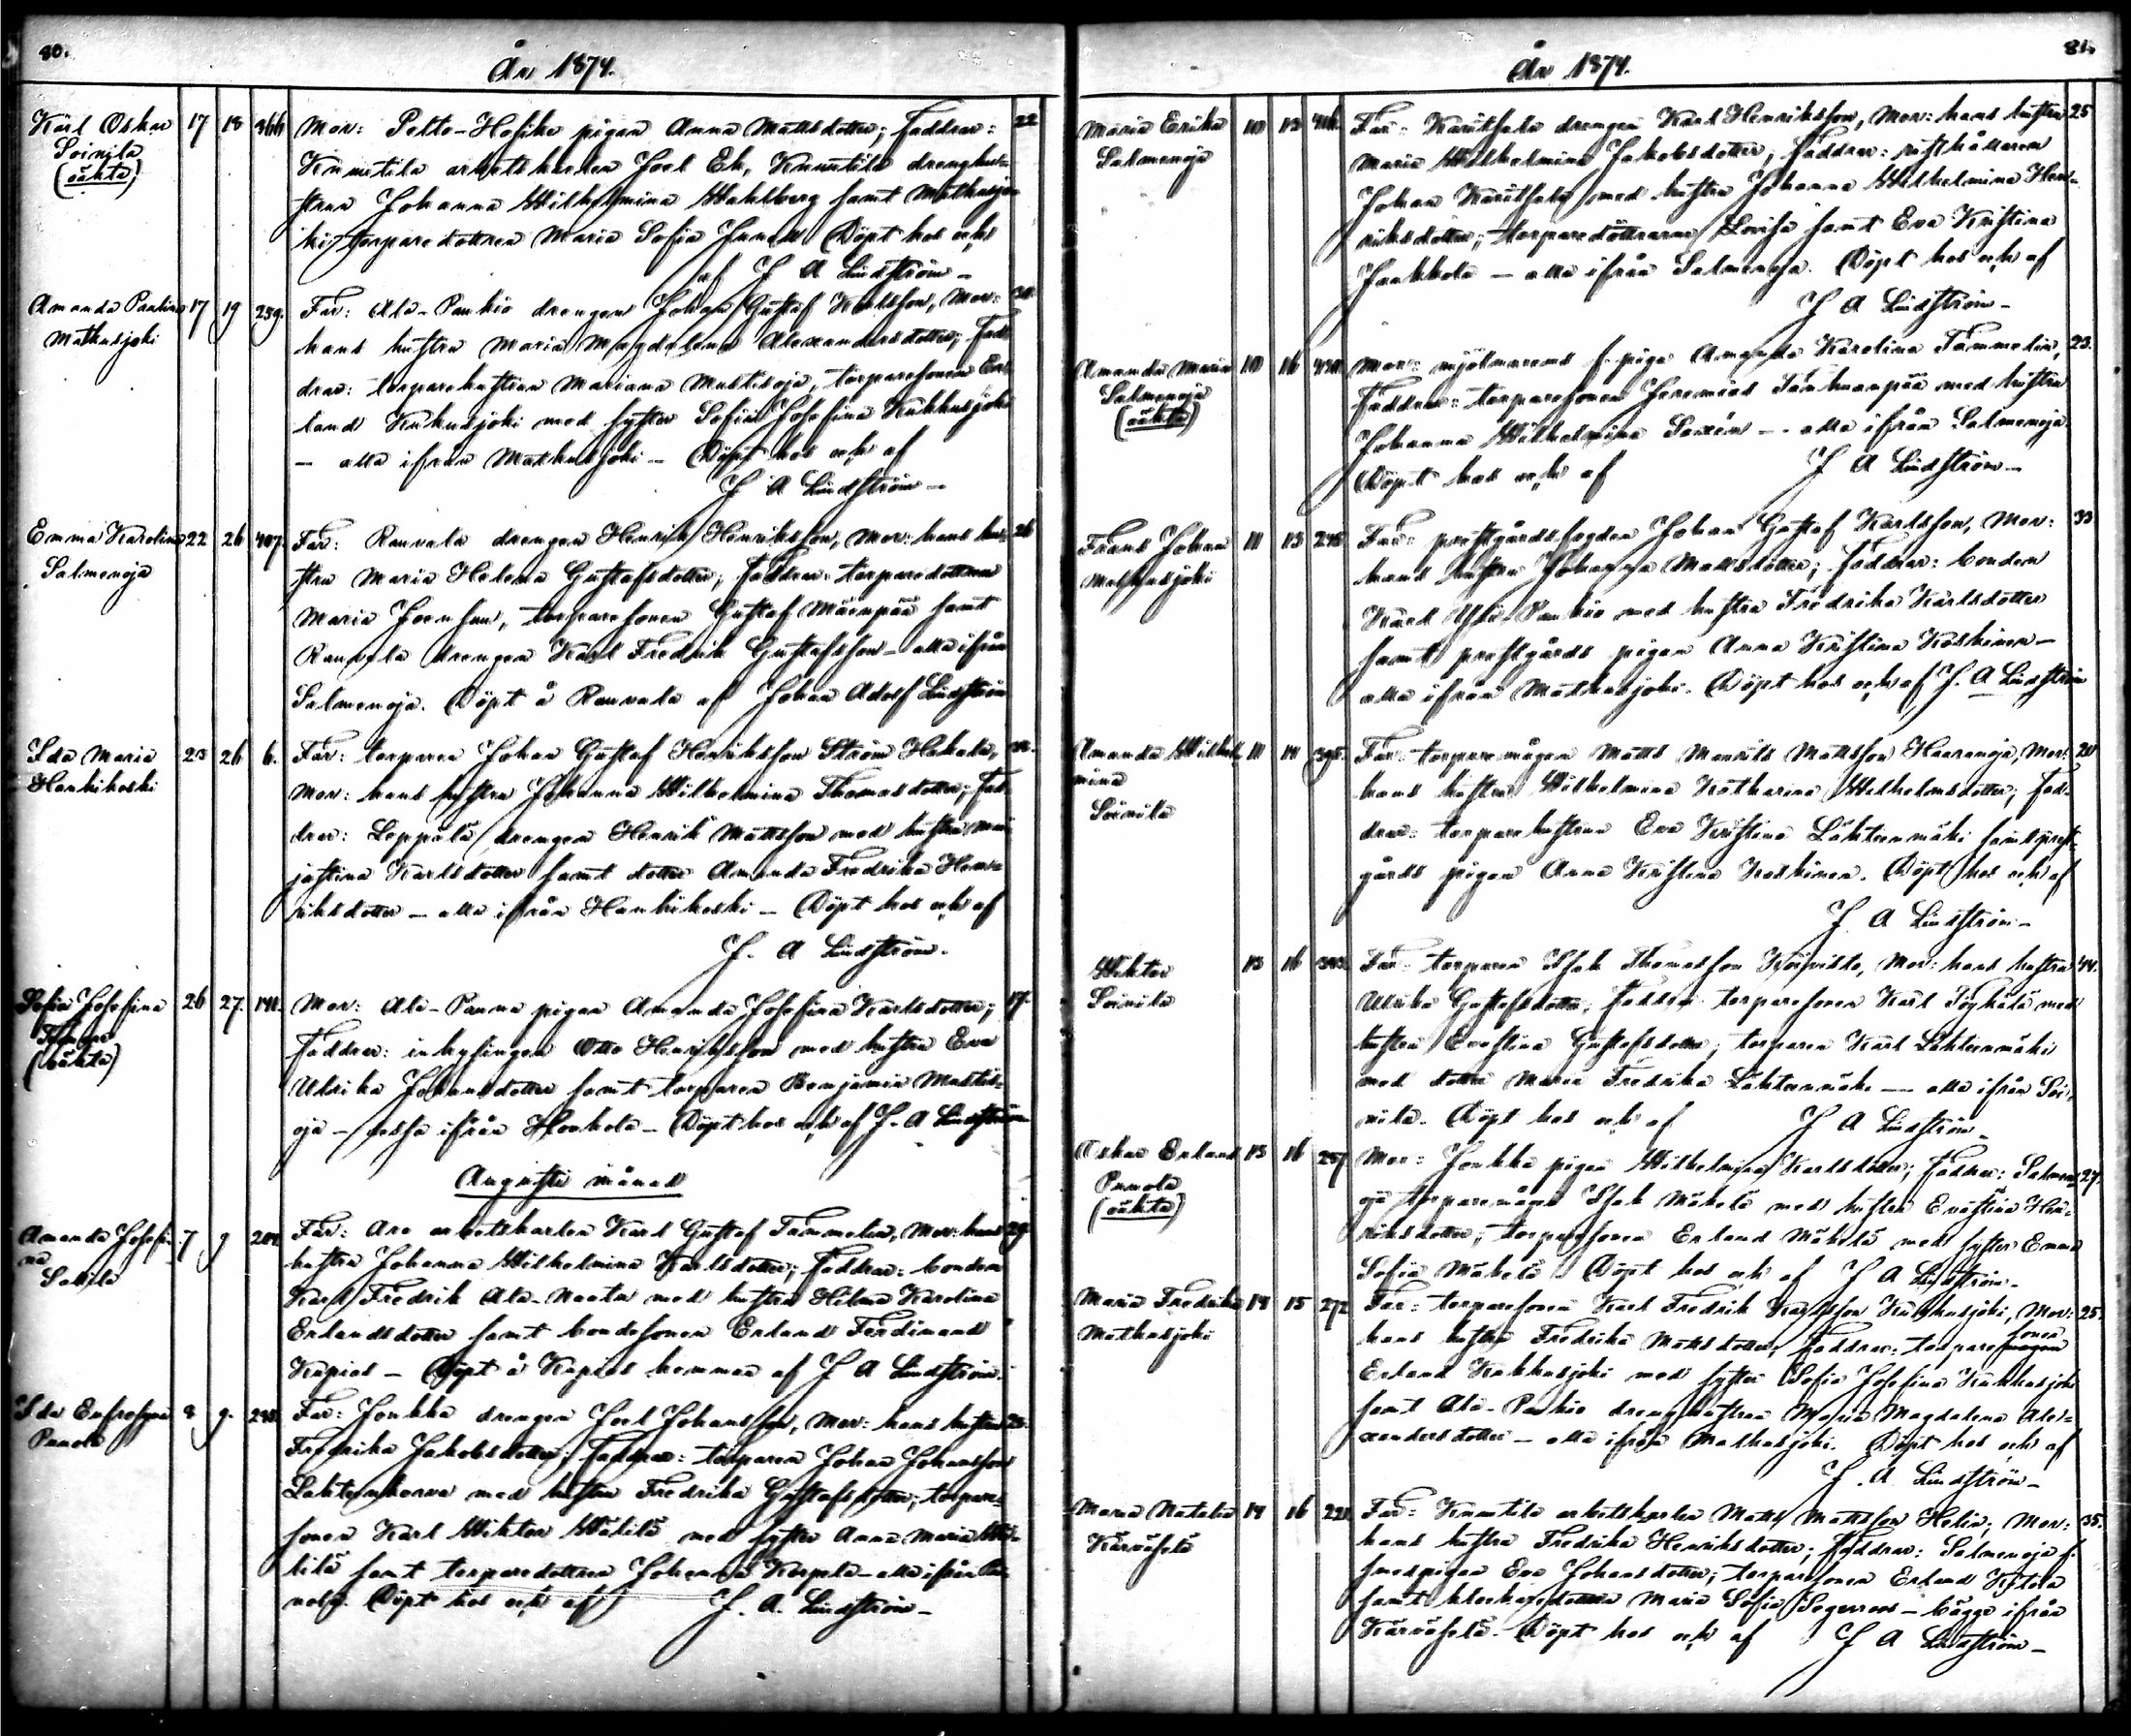 80.
År 1874.
Karl Oskar 17 18 366 Mor: Pelto-Hosike pigan Anna Mattsdotter; Faddrar: 22
Soinila Knuutila arbetskarlen Joel Ek, Knuutila drenghu-
(oäkta) strun Johanna Wilhelmina Wahlberg samt Mathusjo-
ki torparedottren Maria Sofia Döpt hos och
af J A Lindström -
Amanda Paulina 17 19 259. Far: Ala-Paukio drengen Johan Gustaf Karlsson, Mor:
Mathusjoki hans hustru Maria Magdalena Alexandersdotter; Fad-
drar: torparehustrun Mariana Mustisoja, torparesonen Er-
land Kukusjoki med syster Sofia Josefina Kukkusjoki
- alla ifrån Mathusjoki - Döpt hos och af
J A Lindström -
Emma Karolina 22 26 407. Far: Rauvala drengen Henrik Henriksson, Mor: hans hu- 26
Salmenoja stru Maria Helena Gustafsdotter; Faddrar: torparedottren
Maria Joensuu, torparesonen Gustaf Mäenpää samt
Rauvola drengen Karl Fredrik Gustafsson - alla ifrån
Salmenoja. Döpt å Rauvala af Johan Adolf Lindström
Ida Maria 23 26 6. Far: torparen Johan Gustaf Henriksson Ström Hakala,
Hanhikoski Mor: hans hustru Johanna Wilhelmina Thomasdotter; Fad-
drar: Leppälä drengen Henrik Mattsson med hustru Ma-
justina Karlsdotter samt dotter Amanda Fredrika Hen-
riksdotter - alla ifrån Hanhikoski - Döpt hos och af
J. A Lindström.
Sofia Josefina 26 27. Mor: Ala-Panna pigan Amanda Josefina Karlsdotter; 17.
(oäkta) Faddrar: inhysingen Otto Henriksson med hustru Eva
Ulrika Johansdotter samt torparen Benjamin Mustis-
oja - dessa ifrån Honkola - Döpt hos och af J. A Lindström
Augusti månad
Amanda Josefi- 7 9 Far: Aro arbetskarlen Karl Gustaf Tammelin, Mor: hans 29
na hustru Johanna Wilhelmina Karlsdotter; Faddrar: bonden
Karl Fredrik Ala-Naatu med hustru Hilma Karolina
Erlandsdotter samt bondesonen Erland Ferdinand
Kapios - Döpt å Kapios hemman af J A Lindström.
Ida Eufrosyne 8 9. Far: Jonkka drengen Joel Johansson, Mor: hans hustru
Panola Fredrika Jakobsdotter; Faddrar: torparen Johan Johansson
Lahteenkorva med hustru Fredrika Gustafsdotter; torpare-
sonen Karl Wiktor Wälilä med syster Anna Maria Wä-
lilä samt torparedottren Johanna Korpela - alla ifrån Pa-
nola. Döpt hos och af J. A. Lindström -
81.
År 1874.
Maria Erika 10 12 Far: Karitsala drengen Karl Henriksson, Mor: hans hustru 25
Salmenoja Maria Wilhelmina Jakobsdotter; Faddrar: rusthållaren
Johan Karitsala med hustru Johanna Wilhelmina Hen-
riksdotter; torparedöttrarne Lovisa samt Eva Kristina
Jaakkola - alla ifrån Salmenoja. Döpt hos och af
J A Lindström -
Amanda Maria 10 16 Mor: mjölnarens f. piga Amanda Karolina Tammelin, 23.
Salmenoja Faddrar: torparesonen Jeremias Tanhuanpää med hustru
(oäkta) Johanna Wilhelmina Saxén - alla ifrån Salmenoja.
Döpt hos och af J A Lindström -
Frans Johan 11 13 Far: prestgårdsfogden Johan Gustaf Karlsson, Mor: 33
Mathusjoki hans hustru Johanna Mattsdotter; Faddrar: bonden
Karl Yli-Paukio med hustru Fredrika Karlsdotter
samt prestgårds pigan Anna Kristina Koskinen -
alla ifrån Mathusjoki. Döpt hos och af J. A Lindström
Amanda Wilhel- 11 14 395. Far: torparemågen Matts Maurits Mattsson Haaranoja, Mor:
mina hans hustru Wilhelmina Katharina Wilhelmsdotter; Fad-
Soinila drar: torparehustrun Eva Kristina Lähteenmäki samt prest-
gårds pigan Anna Kristina Koskinen. Döpt hos och af
J A Lindström -
Wiktor 13 16 Far: torparen Isak Thomasson Koivisto, Mor: hans hustru 44.
Soinila Ulrika Gustafsdotter; Faddrar: torparesonen Karl Töykälä med
hustru Evastina Gustafsdotter; torparen Karl Lähteenmäki
med dotter Maria Fredrika Lähteenmäki - alla ifrån Soi-
nila. Döpt hos och af J A Lindström -
Oskar Erland 13 16 257 Mor: Jonkka pigan Wilhelmina Karlsdotter; Faddrar: Salmen- 27.
Panola oja torparemågen Isak Mäkelä med hustru Evastina Hen-
(oäkta) riksdotter; torparesonen Erland Mäkelä med syster Emma
Sofia Mäkelä. Döpt hos och af J A Lindström -
Maria Fredrika 14 15 272 Far: torparesonen Karl Fredrik Karlsson Kukkusjoki, Mor: 25.
Mathusjoki hans hustru Fredrika Mattsdotter; Faddrar: torparesonen
Erland Kukkusjoki med syster Sofia Josefina Kukkusjoki
samt Ala-Paukio drenghustrun Maria Magdalena Ale-
xandersdotter - alla ifrån Mathusjoki. Döpt hos och af
J. A Lindström -
Maria Natalia 14 16 221. Far: Knuutila arbetskarlen Matts Mattsson Helin, Mor: 35.
Karväselä hans hustru Fredrika Henriksdotter; Faddrar: Salmenoja f.
smedpigan Eva Johansdotter; torparesonen Erland Kytölä
samt klockaredottren Maria Sofia Segerroos - bägge ifrån
Karväselä. Döpt hos och af J A Lindström -